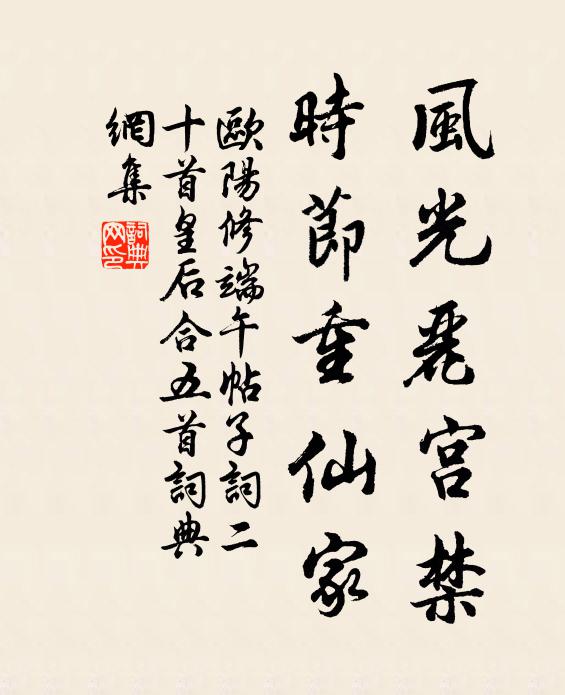 風光麗宮禁
時節重仙家
歐陽修端午帖子詞二
十首皇后合五首詞典
網集
詞典网印